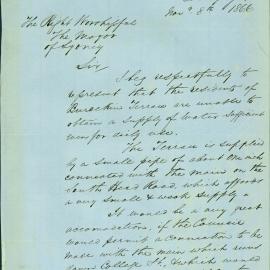 Novr 8th 1866
The Right Worshipful
The Mayor
of Sydney
Sir
I beg respectfully to
represent that the residents of
Terrace are unable to
obtain a supply of Water sufficient
even for daily use.
The Terrace is supplied
by a small pipe of about one inch
connected with the mains on the
South Head Road, which affords
a very small & weak supply.
It would be a very great
accomodation, if the Council
would permit a connection to be
made with the main which runs
down College St, & which would